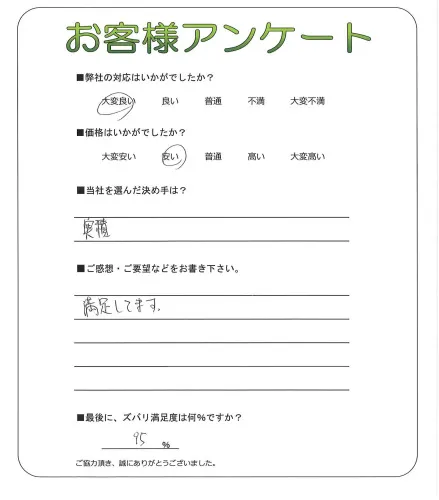 お客様アンケート
■弊社の対応はいかがでしたか？
大変良い 良い 普通 不満 大変不満
■価格はいかがでしたか？
大変安い 安い 普通 高い 大変高い
■当社を選んだ決め手は？
実積
■ご感想・ご要望などをお書き下さい。
満足してます.
■最後に、ズバリ満足度は何％ですか？
95 ％
ご協力頂き、誠にありがとうございました。